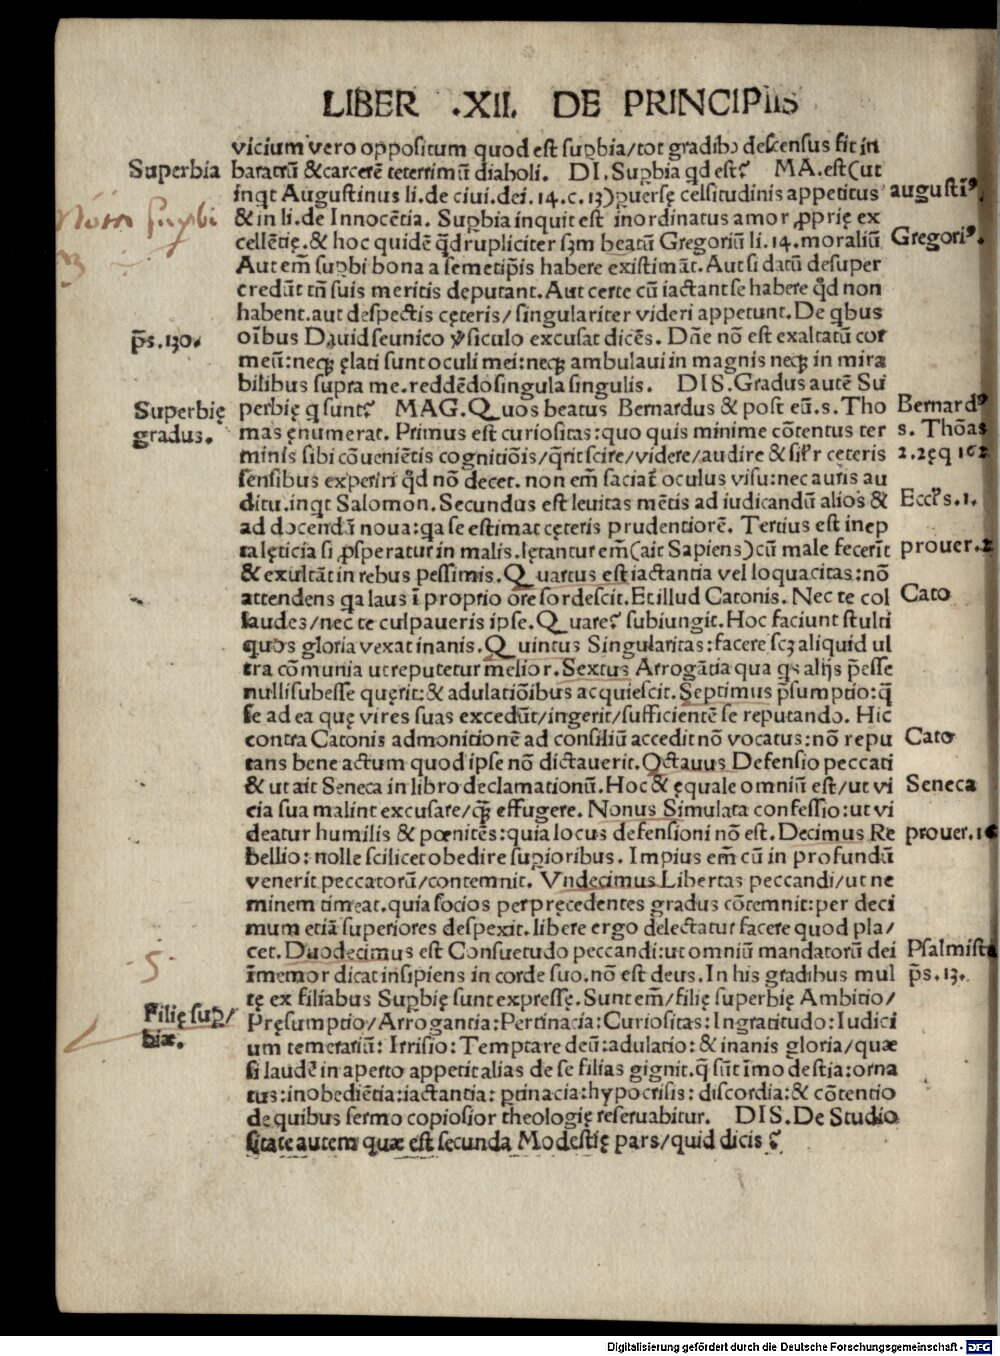 LIBER .XII. DE PRINCIPIIS
vicium vero oppositum quod est supbia/tot gradibꝰ descensus fit in
Superbia
baratrū & carcerē teterrimū diaboli. DI. Supbia qd est? MA. est(ut
inqt Augustinus li. de ciui. dei. 14. c. 13)puersę celsitudinis appetitus
augusti⁹.
Nota supbi
& in li. de Innocētia. Supbia inquit est inordinatus amor ꝓprię ex
cellētię. & hoc quidē q̄drupliciter sꝫm beatū Gregoriū li. 14. moraliū
Gregori⁹.
Aut em̄ supbi bona a semetip̄is habere existimāt. Aut si datū desuper
credūt tn̄ suis meritis deputant. Aut certe cū iactant se habere qd̄ non
habent. aut despectis cęteris/ singulariter videri appetunt. De qbus
p̄s. 130.
oībus Dauid se unico ꝟsiculo excusat dicēs. Dn̄e nō est exaltatū cor
meū: neqꝫ ęlati sunt oculi mei: neqꝫ ambulaui in magnis neqꝫ in mira
bilibus supra me. reddēdo singula singulis. DIS. Gradus autē Su
Superbię
gradus.
perbię q sunt? MAG. Quos beatus Bernardus & post eū. s. Tho
Bernard⁹
mas ęnumerat. Primus est curiositas: quo quis minime cōtentus ter
s. Thōas
minis sibi cōueniētis cognitiōis/q̄rit scire/videre/audire & silr̄ cęteris
2. 2ęq 162
sensibus experiri qd̄ nō decet. non em̄ saciat̄ oculus visu: nec auris au
ditu. inqt Salomon. Secundus est leuitas mētis ad iudicandū alios &
Eccl̄s. 1.
ad docendū noua: qa se estimat cęteris prudentiorē. Tertius est inep
ta lęticia si ꝓsperatur in malis. lętantur em̄(ait Sapiens)cū male fecerīt
prouer. 2
& exultāt in rebus pessimis. Quartus est iactantia vel loquacitas: nō
attendens qa laus ī proprio ore sordescit. Et illud Catonis. Nec te col
Cato
laudes/nec te culpaueris ipse. Quare? subiungit. Hoc faciunt stulti
quos gloria vexat inanis. Quintus Singularitas: facere scꝫ aliquid ul
tra cōmunia ut reputetur melior. Sextus Arrogātia qua qs alijs p̄esse
nulli subesse quęrit: & adulatiōibus acquiescit. Septimus p̄sumptio: q̄
se ad ea quę vires suas excedūt/ingerit/sufficientē se reputando. Hic
contra Catonis admonitionē ad consiliū accedit nō vocatus: nō repu
Cato
tans bene actum quod ipse nō dictauerit. Octauus Defensio peccati
& ut ait Seneca in libro declamationū. Hoc & ęquale omniū est/ut vi
Seneca
cia sua malint excusare/qꝫ̄ effugere. Nonus Simulata confessio: ut vi
deatur humilis & pœnitēs: quia locus defensioni nō est. Decimus Re
prouer. 1
bellio: nolle scilicet obedire supioribus. Impius em̄ cū in profundū
venerit peccatorū/contemnit. Vndecimus Libertas peccandi/ut ne
minem timeat. quia socios per pręcedentes gradus cōtemnit: per deci
mum etiā superiores despexit. libere ergo delectatur facere quod pla/
cet. Duodecimus est Consuetudo peccandi: ut omniū mandatorū dei
Psalmista
5
īmemor dicat insipiens in corde suo. nō est deus. In his gradibus mul
p̄s. 13.
tę ex filiabus Supbię sunt expressę. Sunt em̄/filię superbię Ambitio/
Filię sup/
biæ.
Pręsumptio/Arrogantia: Pertinacia: Curiositas: Ingratitudo: Iudici
um temerariū: Irrisio: Temptare deū: adulatio: & inanis gloria/quæ
si laudē in aperto appetit alias de se filias gignit. q̄ sūt īmodestia: orna
tus: inobediētia: iactantia: ptinacia: hypocrisis: discordia: & cōtentio
de quibus sermo copiosior theologię reseruabitur. DIS. De Studio
sitate autem quæ est secunda Modestię pars/quid dicis?
Digitalisierung gefördert durch die Deutsche Forschungsgemeinschaft - DFG